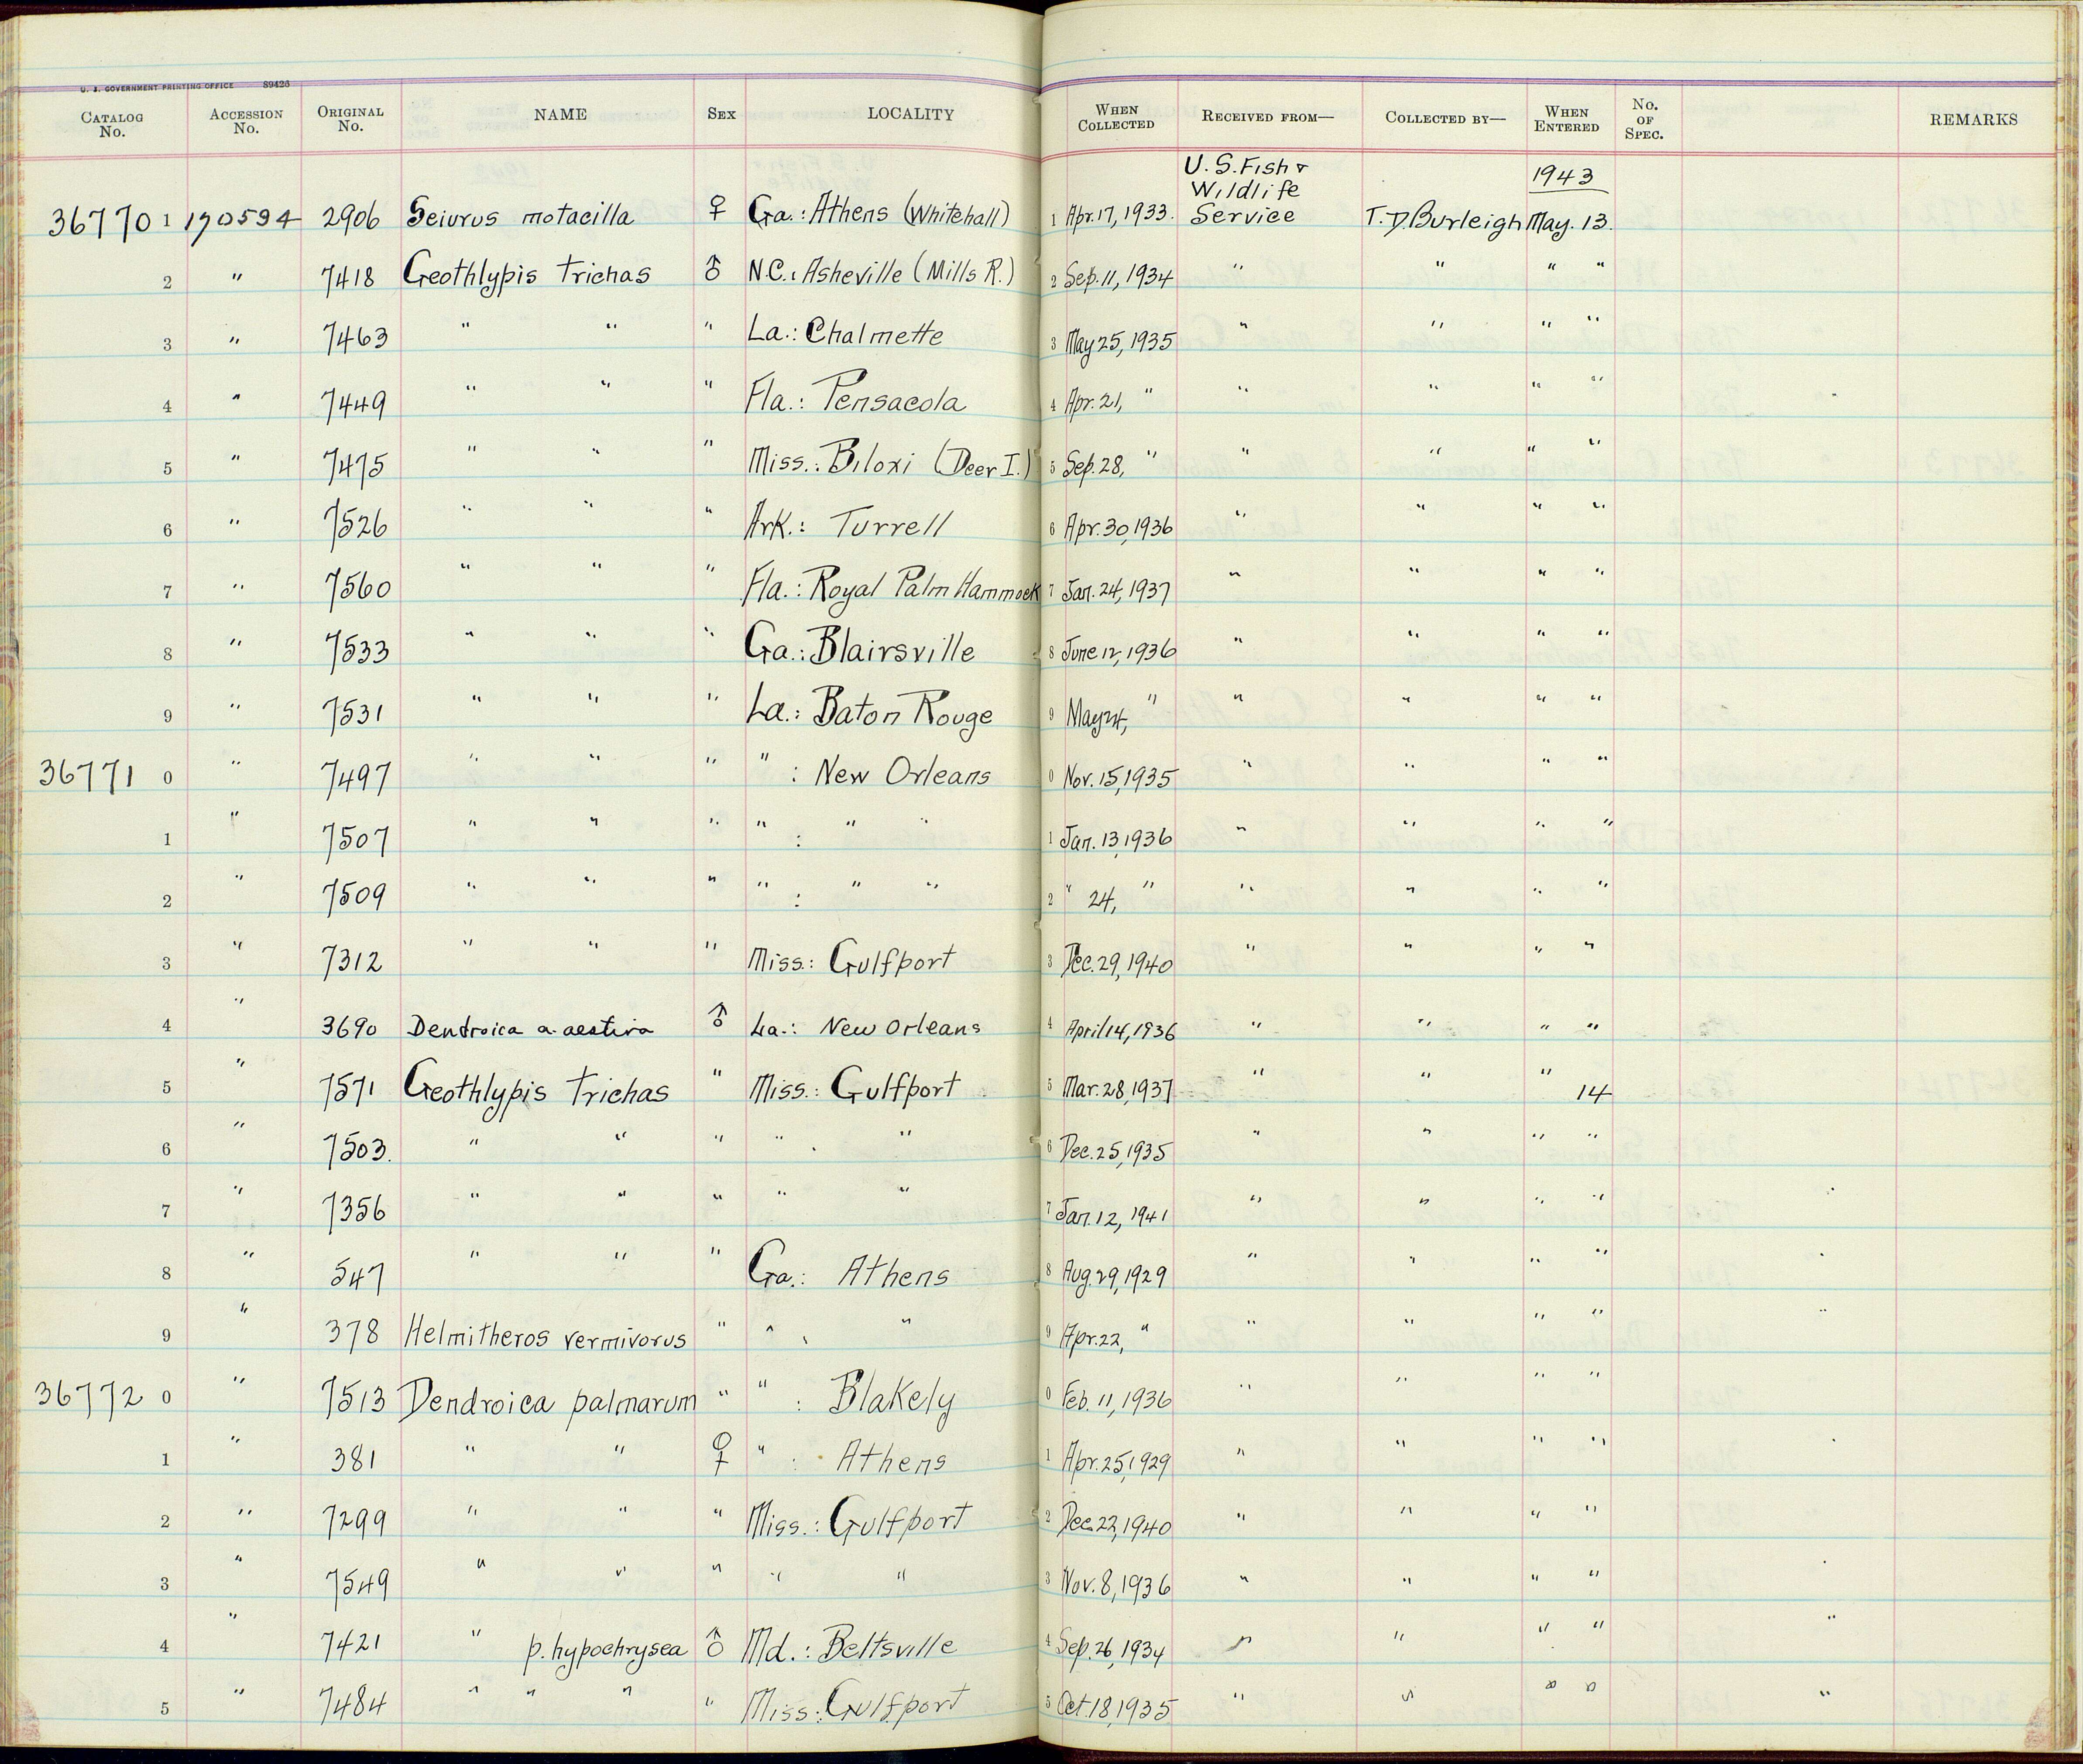 U. S. GOVERNMENT PRINTING OFFICE 89426
CATALOG No. ACCESSION No. ORIGINAL No. NAME SEX LOCALITY WHEN COLLECTED RECEIVED FROM— COLLECTED BY— WHEN ENTERED No. OF SPEC. REMARKS
36770 1 170594 2906 Seiurus motacilla ♀ Ga.: Athens (Whitehall) 1 Apr. 17, 1933. U. S. Fish & Wildlife Service T. D. Burleigh 1943 May. 13.
2 " 7418 Geothlypis trichas ♂ N.C.: Asheville (Mills R.) 2 Sep. 11, 1934 " " " "
3 " 7463 " " " La.: Chalmette 3 May 25, 1935 " " " "
4 " 7449 " " " Fla.: Pensacola 4 Apr. 21, " " " " "
5 " 7475 " " " Miss.: Biloxi (Deer I.) 5 Sep. 28, " " " " "
6 " 7526 " " " Ark.: Turrell 6 Apr. 30, 1936 " " " "
7 " 7560 " " " Fla.: Royal Palm Hammock 7 Jan. 24, 1937 " " " "
8 " 7533 " " " Ga.: Blairsville 8 June 12, 1936 " " " "
9 " 7531 " " " La.: Baton Rouge 9 May 24, " " " " "
36771 0 " 7497 " " " " : New Orleans 0 Nov. 15, 1935 " " " "
1 " 7507 " " " " : " " 1 Jan. 13, 1936 " " " "
2 " 7509 " " " " : " " 2 " 24, " " " " "
3 " 7312 " " " Miss.: Gulfport 3 Dec. 29, 1940 " " " "
4 " 3690 Dendroica a. aestiva ♂ La.: New Orleans 4 April 14, 1936 " " " "
5 " 7571 Geothlypis trichas " Miss.: Gulfport 5 Mar. 28, 1937 " " " 14
6 " 7503. " " " " . " 6 Dec. 25, 1935 " " " "
7 " 7356 " " " " " 7 Jan. 12, 1941 " " " "
8 " 547 " " " Ga.: Athens 8 Aug. 29, 1929 " " " "
9 " 378 Helmitheros vermivorus " " " 9 Apr. 22, " " " " "
36772 0 " 7513 Dendroica palmarum " " : Blakely 0 Feb. 11, 1936 " " " "
1 " 381 " " ♀ " : Athens 1 Apr. 25, 1929 " " " "
2 " 7299 " " " Miss.: Gulfport 2 Dec. 22, 1940 " " " "
3 " 7549 " " " " " 3 Nov. 8, 1936 " " " "
4 " 7421 " p. hypochrysea ♂ Md.: Beltsville 4 Sep. 26, 1934 " " " "
5 " 7484 " " " " Miss.: Gulfport 5 Oct. 18, 1935 " " " "